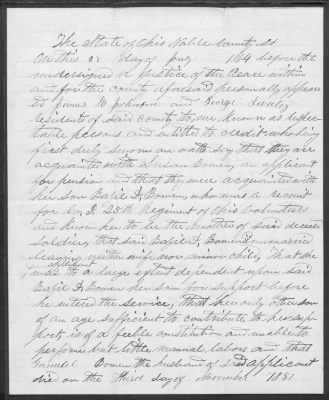 The State of Ohio Noble County, SS
On this 23 day of Aug 1864 before the
undersigned a Justice of the Peace within
and for the county aforesaid personally appear
ed James W Johnson and George
residents of said County, to me known as respec
table persons and entitled to credit who being
first duly sworn on oath say that they are
acquainted with Susan Bowen an applicant
for pension and that they were acquainted with
her son Bazil D. Bowen, who was a recruit
for Co. I. 25th Regiment of Ohio Volunteers
and know her to be the mother of said deceased
soldier, that said Bazil D. Bowen unmarried
leaving neither wife nor minor child, that she
applicant
was to a large extent dependent upon said
Bazil D. Bowen her son for support before
he entered the service, that her only other son
of an age sufficient to contribute to her sup
port, is of a feeble constitution and unable to
perform but little manual labor, and that
Samuel Bowen the husband of said applicant
died on the third day of November 1851